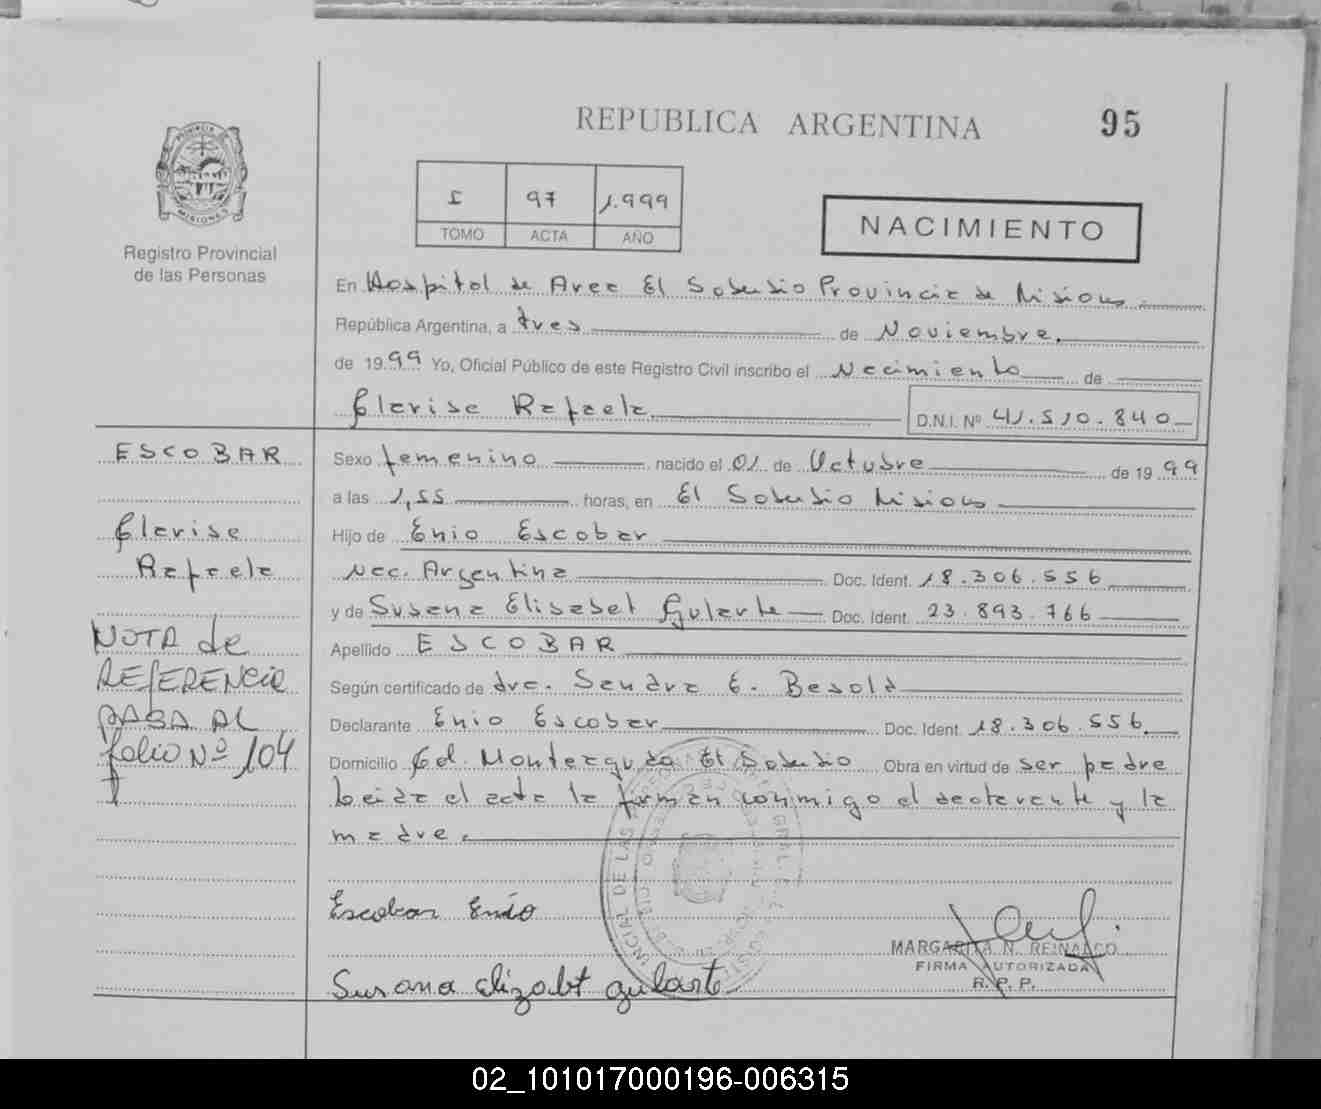 REPUBLICA ARGENTINA
95
PROVINCIA DE
MISIONES
Registro Provincial
de las Personas
I 97 1.999
TOMO ACTA AÑO
NACIMIENTO
En Hospital de Area El Soberbio Provincia de Misiones
República Argentina, a tres de Noviembre
de 1999 Yo, Oficial Público de este Registro Civil inscribo el Nacimiento de
Clarise Rafaela
D.N.I. Nº 41.510.840
ESCOBAR
Clarise
Rafaela
NOTA de
REFERENCIA
PASA AL
folio Nº 104
Sexo femenino nacido el 01 de Octubre de 1999
a las 1,55 horas, en El Soberbio Misiones
Hijo de Enio Escobar
Nac. Argentina Doc. Ident. 18.306.556
y de Susana Elisabet Gularte Doc. Ident. 23.893.766
Apellido ESCOBAR
Según certificado de dra. Sandra E. Besold
Declarante Enio Escobar Doc. Ident. 18.306.556
Domicilio Col. Monteagudo El Soberbio Obra en virtud de ser padre
Leida el acta la firman conmigo el declarante y la
madre.
Escobar Enio
MARGARITA N. REINALCO
FIRMA AUTORIZADA
R. P. P.
Susana elizabt gularte
02_101017000196-006315